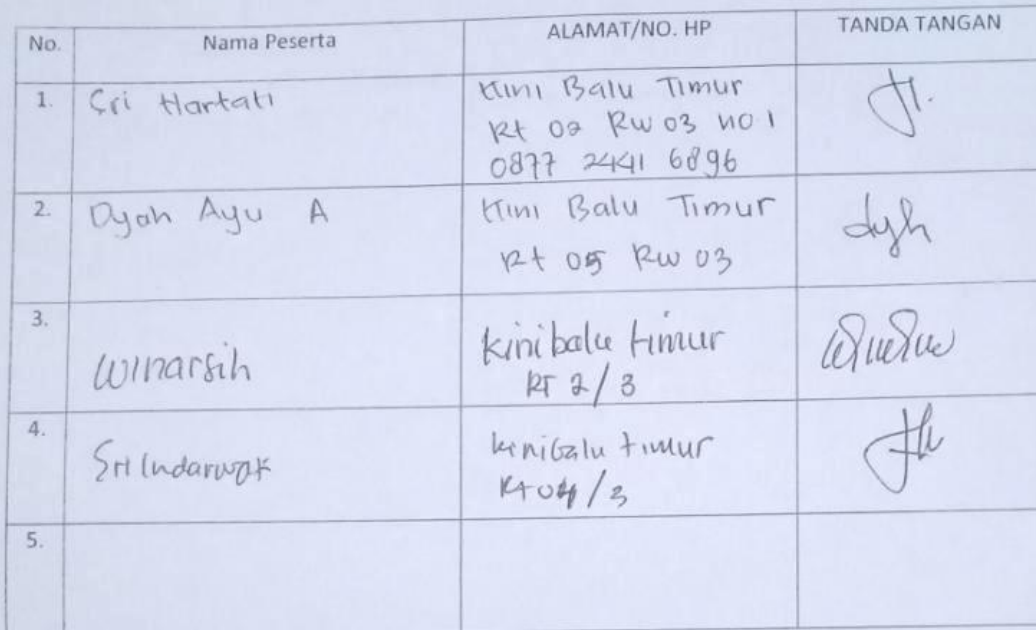 No. Nama Peserta ALAMAT/NO. HP TANDA TANGAN
1. Sri Hartati Kini Balu Timur
Rt 02 Rw 03 no 1
0877 2441 6896
2. Dyah Ayu A Kini Balu Timur dyh
Rt 05 Rw 03
3. Winarsih kini balu timur
RT 2/3
4. Sri kinibalu timur
Rt 04/3
5.